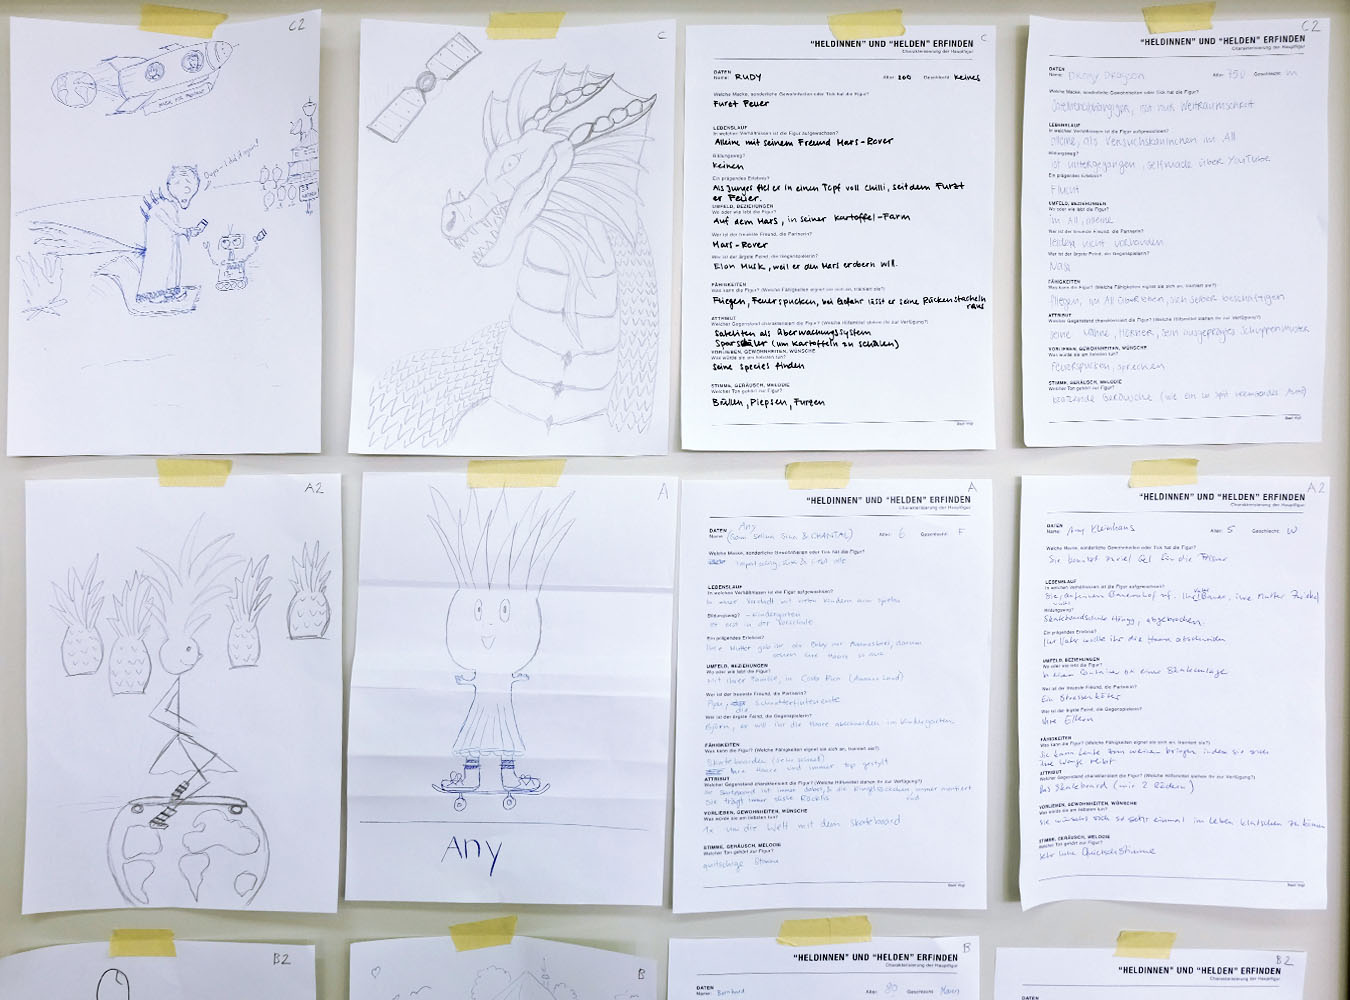 C2
Oops - I did it again!
C
"HELDINNEN" UND "HELDEN" ERFINDEN
C
Charakterisierung der Hauptfigur
DATEN
Name: RUDY Alter: 200 Geschlecht: keines
Welche Macke, sonderliche Gewohnheiten oder Tick hat die Figur?
Furzt Feuer
LEBENSLAUF
In welchen Verhältnissen ist die Figur aufgewachsen?
Alleine mit seinem Freund Mars-Rover
Bildungsweg?
Keinen
Ein prägendes Erlebnis?
Als Junges fiel er in einen Topf voll Chilli, seitdem Furzt
er Feuer.
UMFELD, BEZIEHUNGEN
Wo oder wie lebt die Figur?
Auf dem Mars, in seiner Kartoffel-Farm
Wer ist der treueste Freund, die Partnerin?
Mars-Rover
Wer ist der ärgste Feind, die Gegenspielerin?
Elon Musk, weil er den Mars erobern will.
FÄHIGKEITEN
Was kann die Figur? (Welche Fähigkeiten eignet sie sich an, trainiert sie?)
Fliegen, Feuerspucken, bei Gefahr lässt er seine Rückenstacheln
raus
ATTRIBUT
Welcher Gegenstand charakterisiert die Figur? (Welche Hilfsmittel stehen ihr zur Verfügung?)
Sateliten als Überwachungssystem
Sparschäler (um Kartoffeln zu schälen)
VORLIEBEN, GEWOHNHEITEN, WÜNSCHE
Was würde sie am liebsten tun?
Seine Species finden
STIMME, GERÄUSCH, MELODIE
Welcher Ton gehört zur Figur?
Brüllen, Piepsen, Furzen
Beat Vogt
C2
"HELDINNEN" UND "HELDEN" ERFINDEN
Charakterisierung der Hauptfigur
DATEN
Name: Dragon Alter: 750 Geschlecht: m
Welche Macke, sonderliche Gewohnheiten oder Tick hat die Figur?
LEBENSLAUF
In welchen Verhältnissen ist die Figur aufgewachsen?
alleine, als Versuchskaninchen im All
Bildungsweg?
ist untergegangen, selfmade über YouTube
Ein prägendes Erlebnis?
Flucht
UMFELD, BEZIEHUNGEN
Wo oder wie lebt die Figur?
im All, alleine
Wer ist der treueste Freund, die Partnerin?
leider nicht vorhanden
Wer ist der ärgste Feind, die Gegenspielerin?
Nasa
FÄHIGKEITEN
Was kann die Figur? (Welche Fähigkeiten eignet sie sich an, trainiert sie?)
Fliegen, im All überleben, sich selber beschäftigen
ATTRIBUT
Welcher Gegenstand charakterisiert die Figur? (Welche Hilfsmittel stehen ihr zur Verfügung?)
seine Hörner, sein ausgeprägtes Schuppenmuster
VORLIEBEN, GEWOHNHEITEN, WÜNSCHE
Was würde sie am liebsten tun?
Feuerspucken, sprechen
STIMME, GERÄUSCH, MELODIE
Welcher Ton gehört zur Figur?
Geräusche (wie ein
Beat Vogt
A2
A
Any
"HELDINNEN" UND "HELDEN" ERFINDEN
A
Charakterisierung der Hauptfigur
Any
DATEN
Name: & CHANTAL) Alter: 6 Geschlecht: F
Welche Macke, sonderliche Gewohnheiten oder Tick hat die Figur?
LEBENSLAUF
In welchen Verhältnissen ist die Figur aufgewachsen?
In einer Vorstadt mit vielen Kindern zum spielen
Bildungsweg? - Kindergarten
ist erst in der Vorschule
Ein prägendes Erlebnis?
Ihre Mutter gab ihr als Baby nur Ananasbrei, darum
sehen ihre Haare so aus
UMFELD, BEZIEHUNGEN
Wo oder wie lebt die Figur?
Mit ihrer Familie, in Costa Rica (Ananas Land)
Wer ist der treueste Freund, die Partnerin?
Wer ist der ärgste Feind, die Gegenspielerin?
Björn, er will ihr die Haare abschneiden im Kindergarten
FÄHIGKEITEN
Was kann die Figur? (Welche Fähigkeiten eignet sie sich an, trainiert sie?)
Skateboarden (sehr schnell)
ihre Haare sind immer top gestylt
ATTRIBUT
Welcher Gegenstand charakterisiert die Figur? (Welche Hilfsmittel stehen ihr zur Verfügung?)
Ihr Skateboard ist immer dabei, & die Ringelsöckchen, immer montiert
Sie trägt immer süsse Röcklis und
VORLIEBEN, GEWOHNHEITEN, WÜNSCHE
Was würde sie am liebsten tun?
1x um die Welt mit dem Skateboard
STIMME, GERÄUSCH, MELODIE
Welcher Ton gehört zur Figur?
quitschige Stimme
Beat Vogt
A2
"HELDINNEN" UND "HELDEN" ERFINDEN
Charakterisierung der Hauptfigur
DATEN
Name: Any Kleinhans Alter: 5 Geschlecht: W
Welche Macke, sonderliche Gewohnheiten oder Tick hat die Figur?
Sie benutzt zuviel Gel für die
LEBENSLAUF
In welchen Verhältnissen ist die Figur aufgewachsen?
Bauernhof auf. Ihr Vater Bauer, ihre Mutter
Bildungsweg?
Skateboardschule Höngg, abgebrochen.
Ein prägendes Erlebnis?
wollte ihr die Haare abschneiden
UMFELD, BEZIEHUNGEN
Wo oder wie lebt die Figur?
In einem Container in einer Skateanlage
Wer ist der treueste Freund, die Partnerin?
Ein Strassenköter
Wer ist der ärgste Feind, die Gegenspielerin?
Ihre Eltern
FÄHIGKEITEN
Was kann die Figur? (Welche Fähigkeiten eignet sie sich an, trainiert sie?)
Sie kann Leute zum weinen bringen indem sie sich
ihre Wange reibt
ATTRIBUT
Welcher Gegenstand charakterisiert die Figur? (Welche Hilfsmittel stehen ihr zur Verfügung?)
Das Skateboard (nur 2 Rädern)
VORLIEBEN, GEWOHNHEITEN, WÜNSCHE
Was würde sie am liebsten tun?
Sie wünscht sich so sehr einmal im Leben klatschen zu können
STIMME, GERÄUSCH, MELODIE
Welcher Ton gehört zur Figur?
sehr hohe Quietschstimme
Beat Vogt
B2
B
B
"HELDINNEN" UND "HELDEN" ERFINDEN
Charakterisierung der Hauptfigur
DATEN
Name: Bernhard Alter: 80 Geschlecht: Mann
B2
"HELDINNEN" UND "HELDEN" ERFINDEN
Charakterisierung der Hauptfigur
DATEN